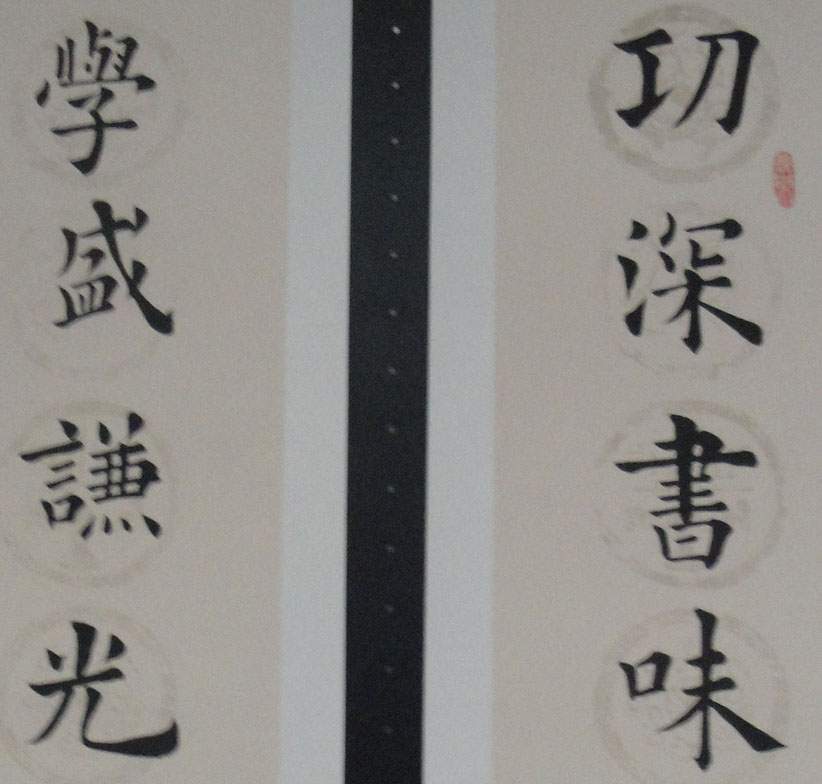 功深書味
學盛謙光